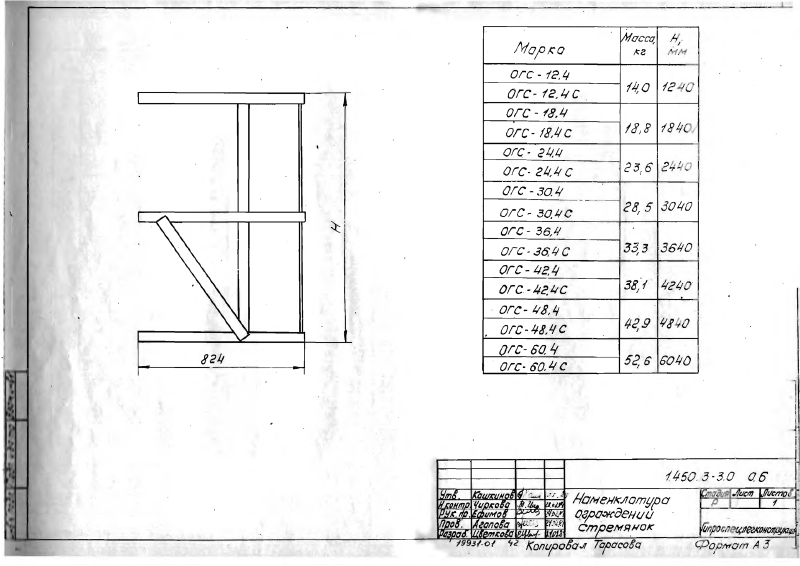 H
824
Марка Масса, кг H, мм
ОГС-12.4
ОГС-12.4С 14,0 1240
ОГС-18.4
ОГС-18.4С 18,8 1840
ОГС-24.4
ОГС-24.4С 23,6 2440
ОГС-30.4
ОГС-30.4С 28,5 3040
ОГС-36.4
ОГС-36.4С 33,3 3640
ОГС-42.4
ОГС-42.4С 38,1 4240
ОГС-48.4
ОГС-48.4С 42,9 4840
ОГС-60.4
ОГС-60.4С 52,6 6040
1.450.3-3.0 0.6
Утв. Кошкинов
Н.контр. Чиркова
Рук.пр. Ефимов
Пров. Агапова
Разраб. Цветкова
Номенклатура
ограждений
стремянок
Стадия Лист Листов
Р 1
19931-01 42 Копировал Тарасова Формат А3